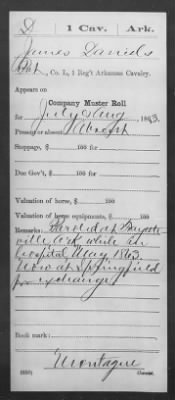 D 1 Cav. Ark.
James Daniels
Pvt., Co. L, 1 Reg't Arkansas Cavalry.
Appears on
Company Muster Roll
for July & Aug, 1863.
Present or absent Absent
Stoppage, $ 100 for
Due Gov't, $ 100 for
Valuation of horse, $ 100
Valuation of horse equipments, $ 100
Remarks: Paroled at Fayette
ville Ark while in
hospital May 1863.
Now at Springfield
for exchange
Book mark:
Montague
(859) Copyist.